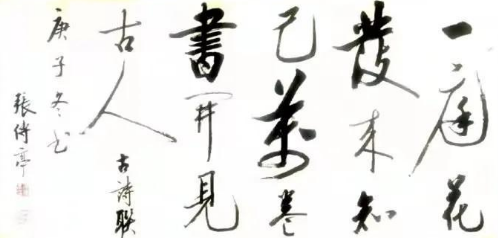 一庭花
發来知
己萬卷
書開見
古人
古詩聯
庚子冬书
張亭